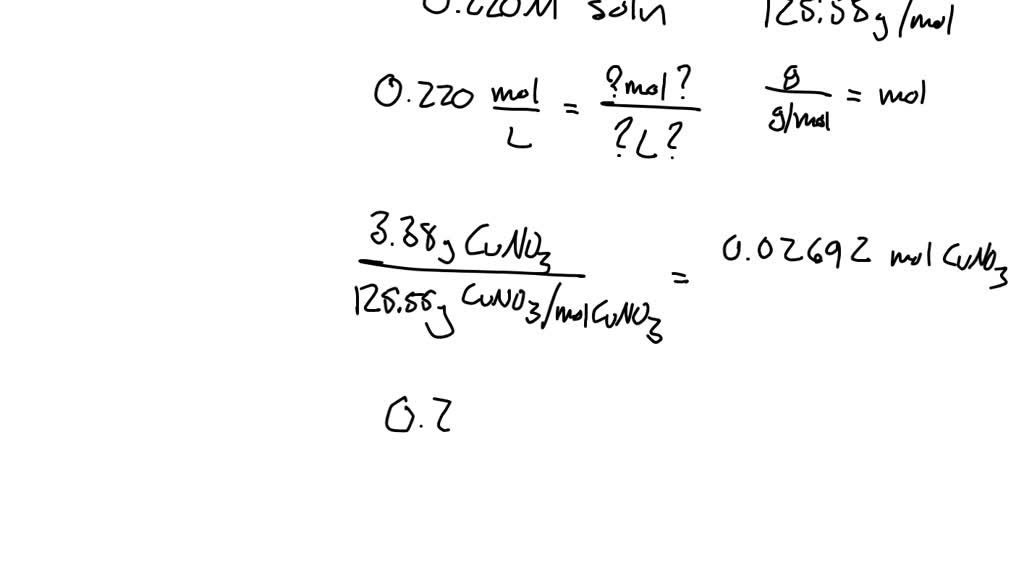 0.220M soln 125.55g/mol
0.220 mol/L = ?mol?/?L? g/g/mol = mol
3.38g CuNO3/125.55g CuNO3/mol CuNO3 = 0.02692 mol CuNO3
0.2